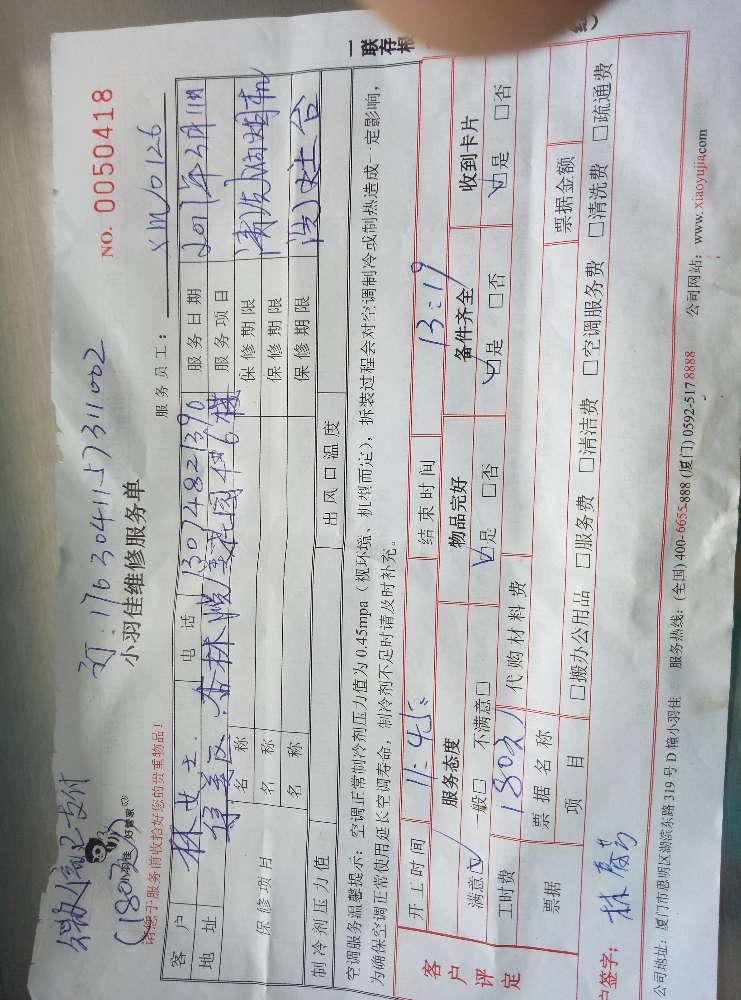 微信已支付
(180元)
订:1703041157311002
NO. 0050418
小羽佳
好管家
小羽佳维修服务单
请您于服务前收拾好您的贵重物品!
服务员工: XM0126
客户 林女士 电话 13074821390 服务日期 2017年3月11日
地址 集美区 杏林 服务项目 清洗油烟机
保修项目 名称 保修期限 洗 台
名称 保修期限
名称 保修期限
制冷剂压力值 出风口温度
空调服务温馨提示:空调正常制冷剂压力值为0.45mpa(视环境、机型而定),拆装过程会对空调制冷或制热造成一定影响,
为确保空调正常使用延长空调寿命,制冷剂不足时请及时补充。
一联存根
客户评定
开工时间 11:45 结束时间 13:19
服务态度 物品完好 备件齐全 收到卡片
满意☑ 一般□ 不满意□ ☑是 □否 ☑是 □否 ☑是 □否
工时费 180元 代购材料费
票据 票据名称 票据金额
项目 □搬办公用品 □服务费 □清洁费 □空调服务费 □清洗费 □疏通费
户签字:林
公司地址:厦门市思明区湖滨东路319号D幢小羽佳 服务热线:(全国)400-6655-888 (厦门)0592-517 8888 公司网站:www.xiaoyujia.com